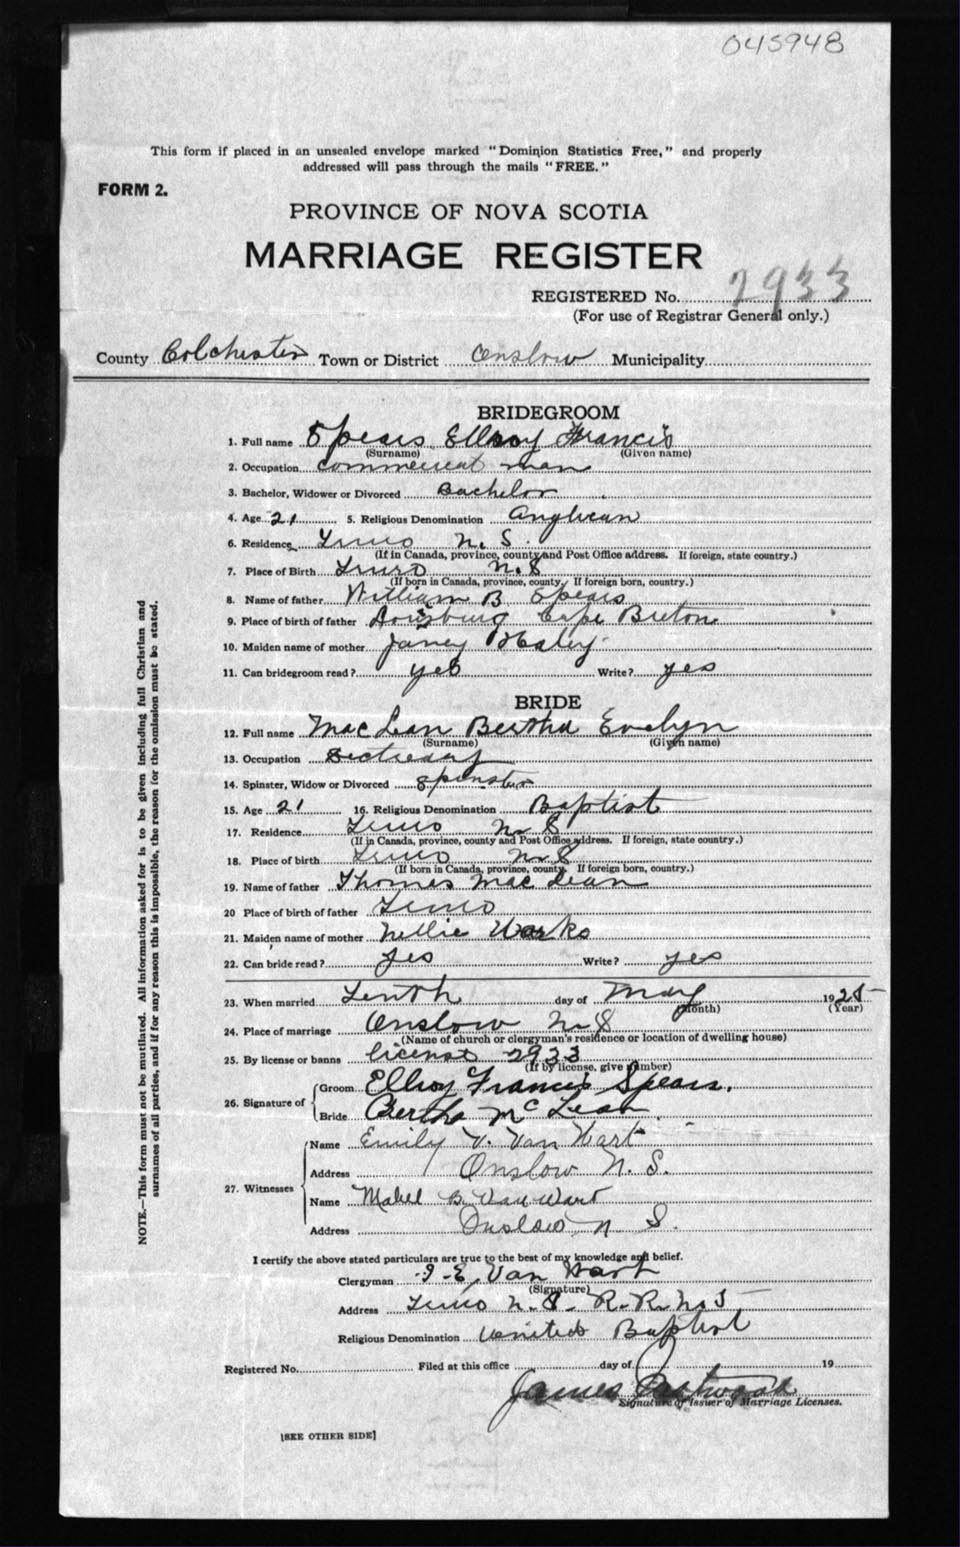 045948
This form if placed in an unsealed envelope marked "Dominion Statistics Free," and properly
addressed will pass through the mails "FREE."
FORM 2.
PROVINCE OF NOVA SCOTIA
MARRIAGE REGISTER
REGISTERED No. 2933
(For use of Registrar General only.)
County Colchester Town or District Onslow Municipality
BRIDEGROOM
1. Full name Spears Ellroy Francis
(Surname) (Given name)
2. Occupation man
3. Bachelor, Widower or Divorced Bachelor
4. Age 21 5. Religious Denomination Anglican
6. Residence Truro N. S.
(If in Canada, province, county and Post Office address. If foreign, state country.)
7. Place of Birth Truro N. S
(If born in Canada, province, county, If foreign born, country.)
8. Name of father William B Spears
9. Place of birth of father Louisburg Cape Breton
10. Maiden name of mother Haley
11. Can bridegroom read? yes Write? yes
BRIDE
12. Full name MacLean Bertha Evelyn
(Surname) (Given name)
13. Occupation
14. Spinster, Widow or Divorced Spinster
15. Age 21 16. Religious Denomination Baptist
17. Residence Truro N S
(If in Canada, province, county and Post Office address. If foreign, state country.)
18. Place of birth Truro N S
(If born in Canada, province, county, If foreign born, country.)
19. Name of father Thomas MacLean
20 Place of birth of father Truro
21. Maiden name of mother Nellie Warks
22. Can bride read? yes Write? yes
23. When married Tenth day of May 1925
(Month) (Year)
24. Place of marriage Onslow N S
(Name of church or clergyman's residence or location of dwelling house)
25. By license or banns license 2933
(If by license, give number)
26. Signature of Groom Ellroy Francis Spears.
Bride Bertha McLean
27. Witnesses Name Emily V. Van Wart
Address Onslow N. S.
Name Mabel B. Van Wart
Address Onslow N S.
I certify the above stated particulars are true to the best of my knowledge and belief.
Clergyman Van Wart
(Signature)
Address Truro N. S. R. R. No 5
Religious Denomination United Baptist
Registered No. Filed at this office day of 19
James
Signature of Issuer of Marriage Licenses.
[SEE OTHER SIDE]
NOTE.—This form must not be mutilated. All information asked for is to be given including full Christian and
surnames of all parties, and if for any reason this is impossible, the reason for the omission must be stated.